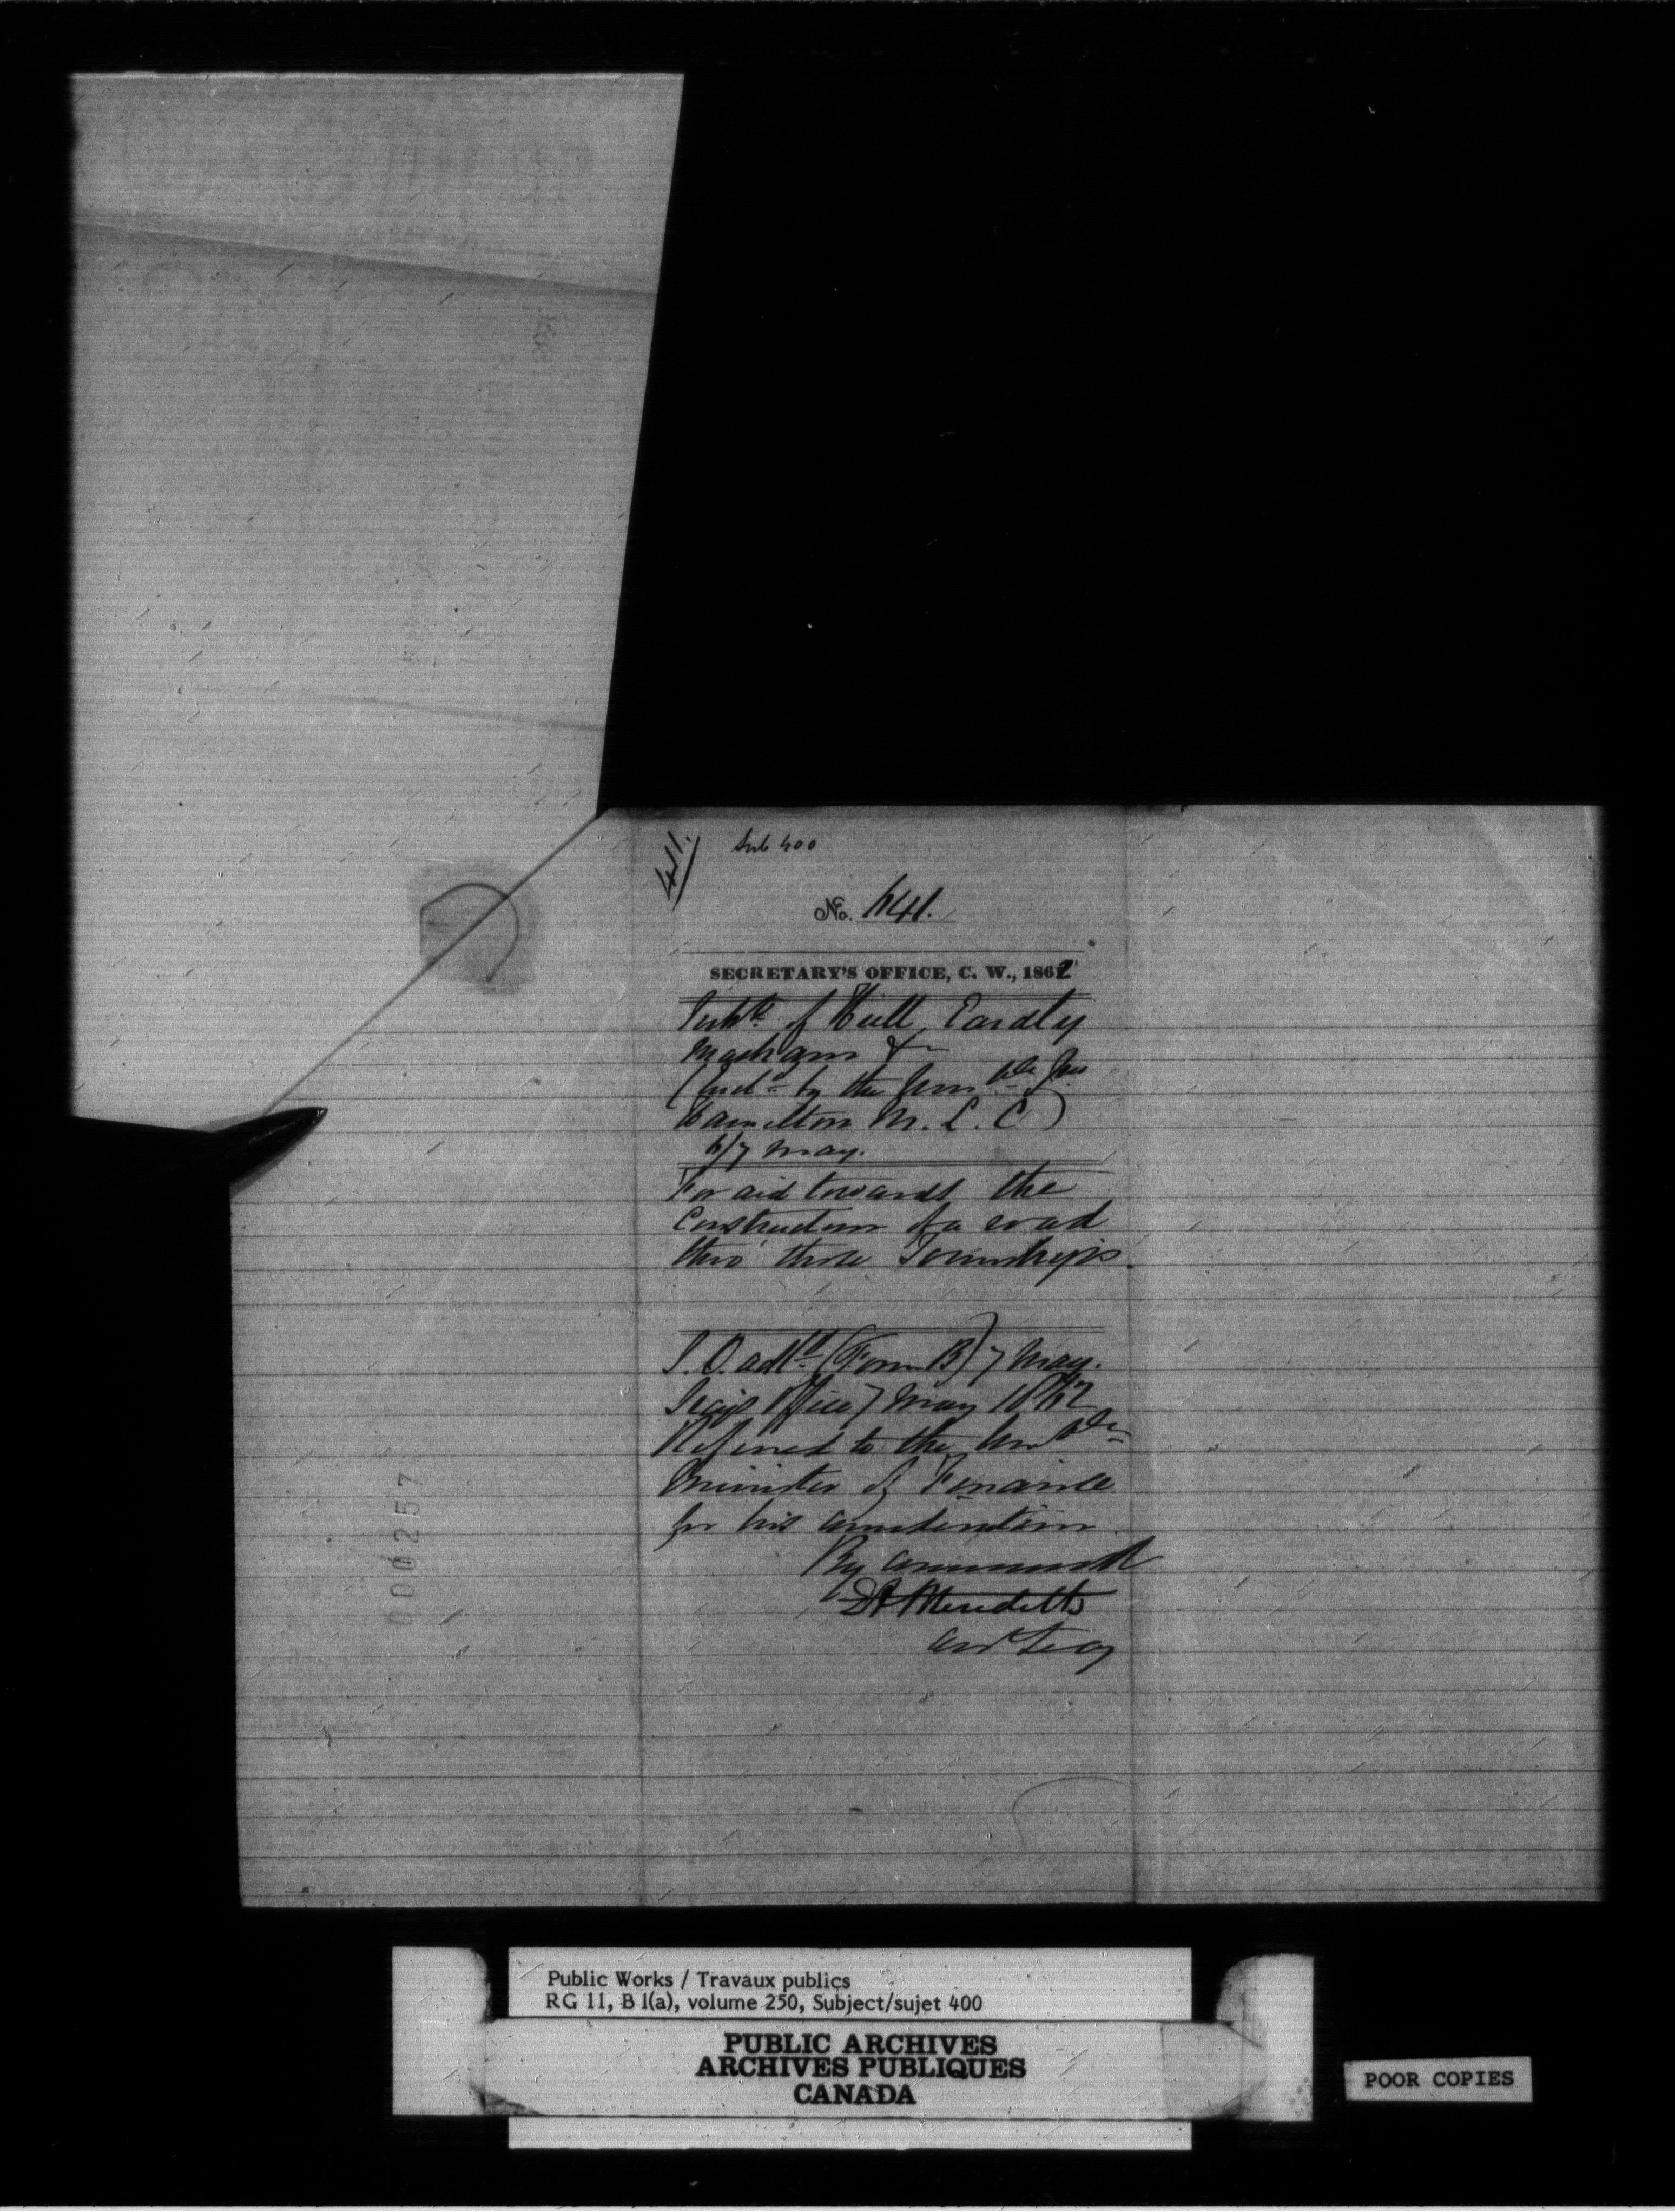 411.
Sub 400
No. 641.
SECRETARY'S OFFICE, C. W., 1862
Inhts. of Hull, Eardly
Masham &c
(Encd. by the Honble Jno
Hamilton M. L. C)
6/7 May.
For aid towards the
Construction of a road
thro' those Townships.
(Form B) 7 May.
Secy's Office 7 May 1862
Referred to the Honble
Minister of Finance
for his consideration.
By command
EA Meredith
Asst Secy
000257
Public Works / Travaux publics
RG 11, B 1(a), volume 250, Subject/sujet 400
PUBLIC ARCHIVES
ARCHIVES PUBLIQUES
CANADA
POOR COPIES